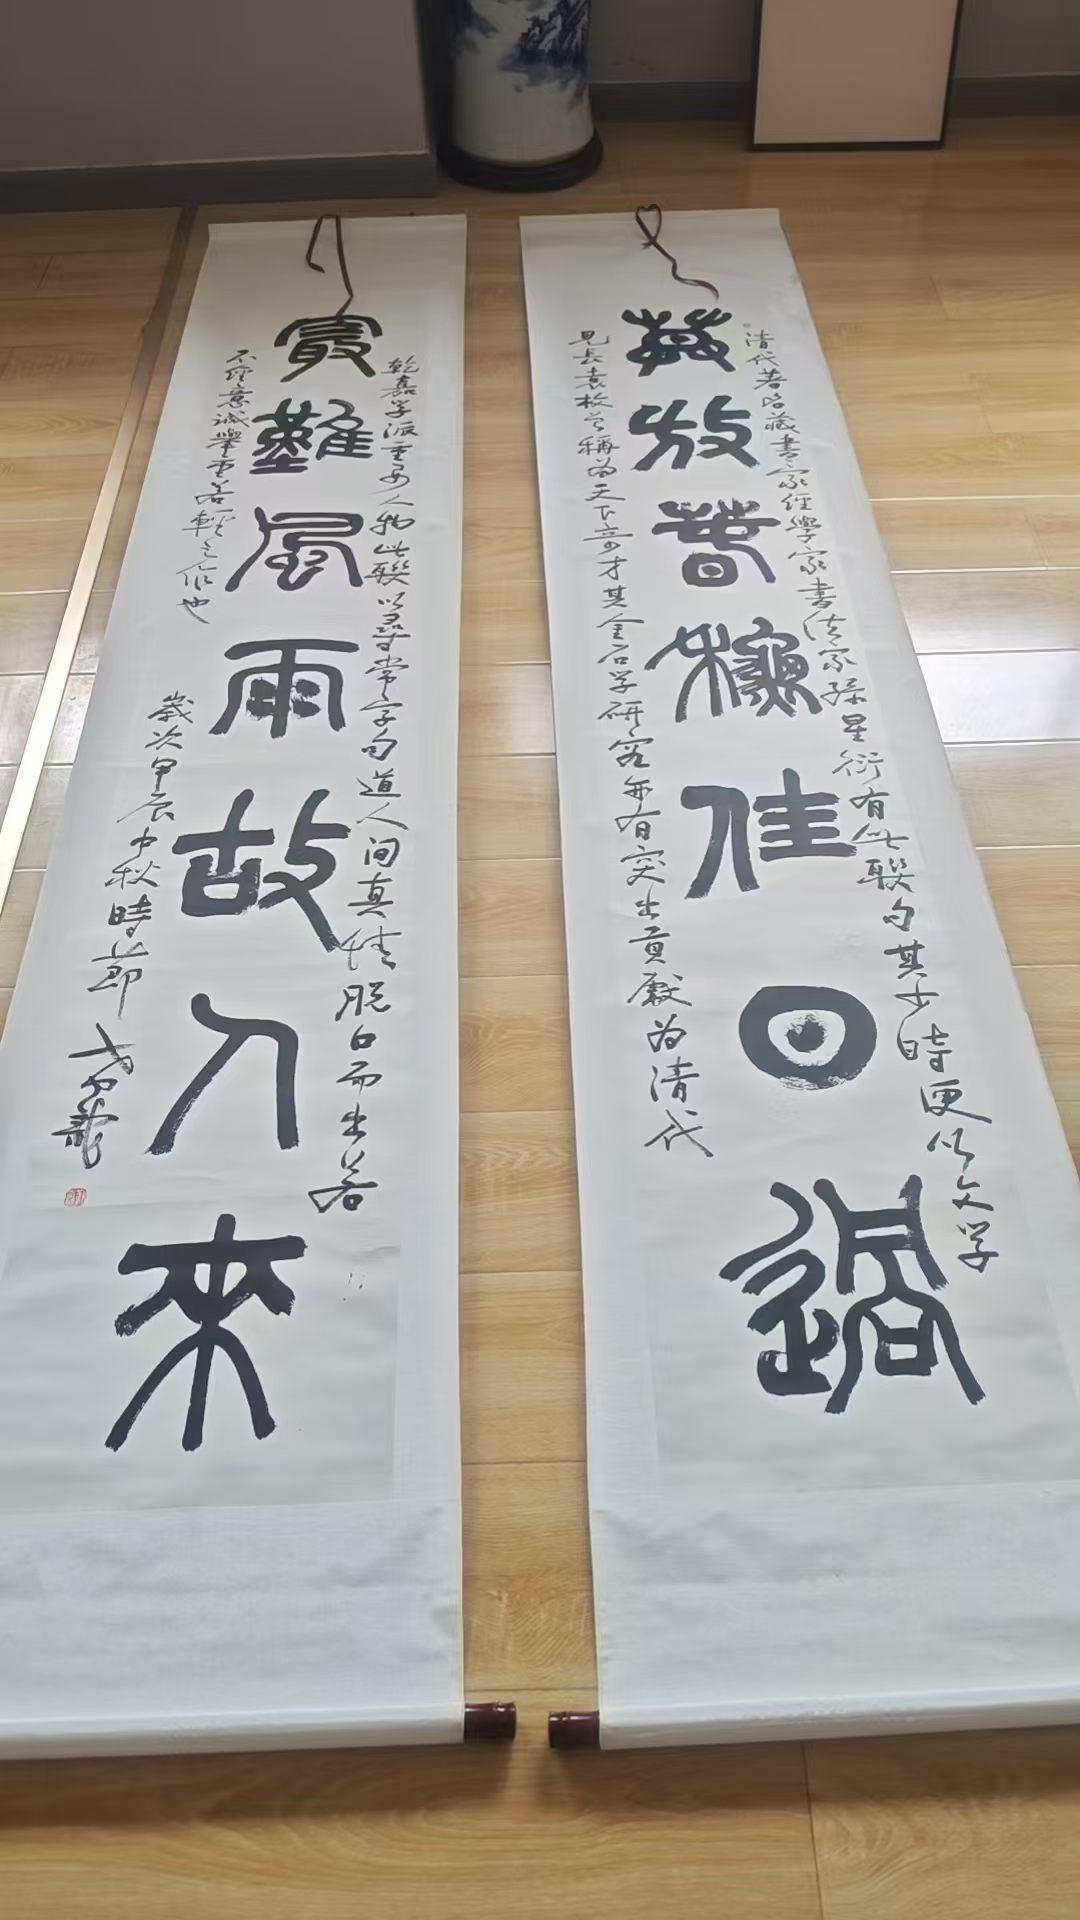 莫放春秋佳日過
清代著名藏書家經學家書法家孫星衍有此聯句其少時便以文学
見長袁枚曾稱為天下奇才其金石学研究亦有突出貢獻為清代
最難風雨故人來
乾嘉学派重要人物此聯以尋常字句道人间真情脱口而出若
不經意誠舉重若輕之作也
歲次甲辰中秋時節